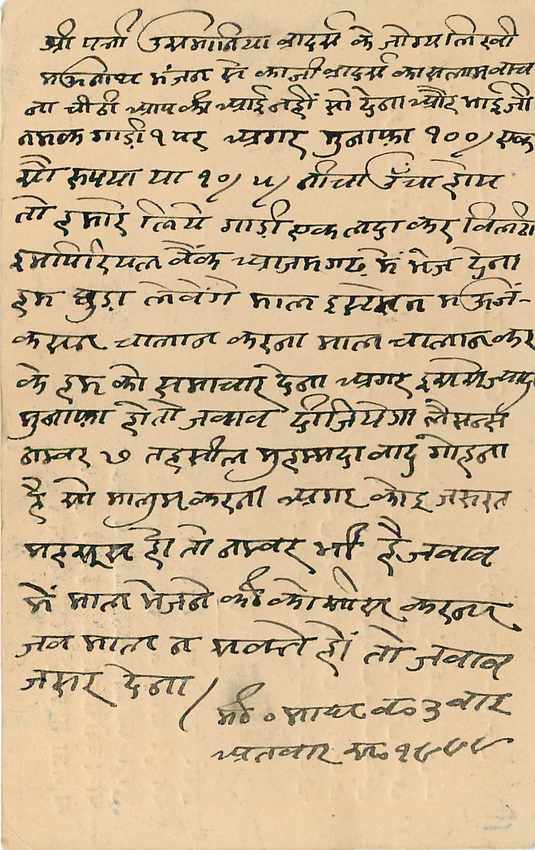 श्री पत्री उसमानिया ब्रादर्स के जोग्य लिखी
मऊनाथ भंजन से काजी ब्रादर्स का सलाम वाच
ना चीठी आपकी आई नहीं सो देना और भाई जी
नमक गाडी १ पर अगर मुनाफ़ा १००) एक
सौ रुपया या १०) ५) नीचा उँचा होय
तो हमारे लिये गाडी एक लादा कर विलटी
इमपिरियल बैंक आजमगढ़ में भेज देना
हम छुड़ा लेवेंगे माल इस्टेसन मऊजं-
कसन चालान करना माल चालान कर
के हम को समाचार देना अगर इससे ज्यादा
मुनाफ़ा हो तो जवाब दीजियेगा लैसन्स
नम्बर ७ तहसील मुहम्मदाबाद गोहना
है सो मालुम करना अगर कोइ जरुरत
महसूस हो तो नम्बर भी है जवाब
में माल भेजने की कोसिस करना
जब माल न सकते हों तो जवाब
जरूर देना
मी० माघ व० ३ वार
अतवार स० १९९९